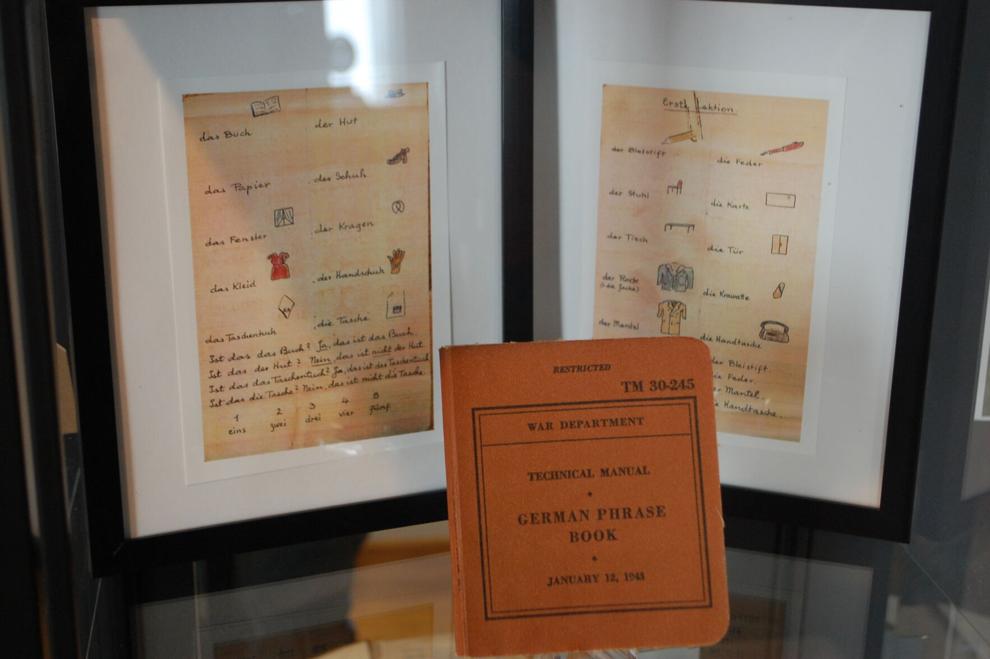 das Buch
der Hut
das Papier
der Schuh
das Fenster
der Kragen
das Kleid
der Handschuh
das Taschentuch
die Tasche
Ist das das Buch? Ja, das ist das Buch.
Ist das der Hut? Nein, das ist nicht der Hut.
Ist das das Taschentuch? Ja, das ist das Taschentuch
Ist das die Tasche? Nein, das ist nicht die Tasche.
1 2 3 4 5
eins zwei drei vier fünf
der Bleistift
die Feder
der Stuhl
die Karte
der Tisch
die Tür
der Rock
die Krawatte
der Mantel
die Handtasche
der Bleistift.
die Feder.
Mantel
Handtasche.
RESTRICTED
TM 30-245
WAR DEPARTMENT
TECHNICAL MANUAL
GERMAN PHRASE
BOOK
JANUARY 12, 1943